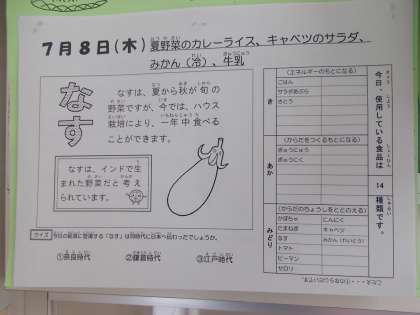 7月8日(木) 夏野菜のカレーライス、キャベツのサラダ、
みかん(冷)、牛乳
なす
なすは、夏から秋が旬の
野菜ですが、今では、ハウス
栽培により、一年中食べる
ことができます。
なすは、インドで生
まれた野菜だと考え
られています。
クイズ 今日の給食に登場する「なす」は何時代に日本へ伝わったでしょうか。
①奈良時代 ②鎌倉時代 ③江戸時代
今日、使用している食品は 14 種類です。
き
(エネルギーのもとになる)
ごはん
サラダあぶら
さとう
あか
(からだをつくるもとになる)
ぎゅうにゅう
ぎゅうにく
みどり
(からだのちょうしをととのえる)
かぼちゃ にんにく
たまねぎ キャベツ
なす みかん(れいとう)
トマト
ピーマン
セロリ